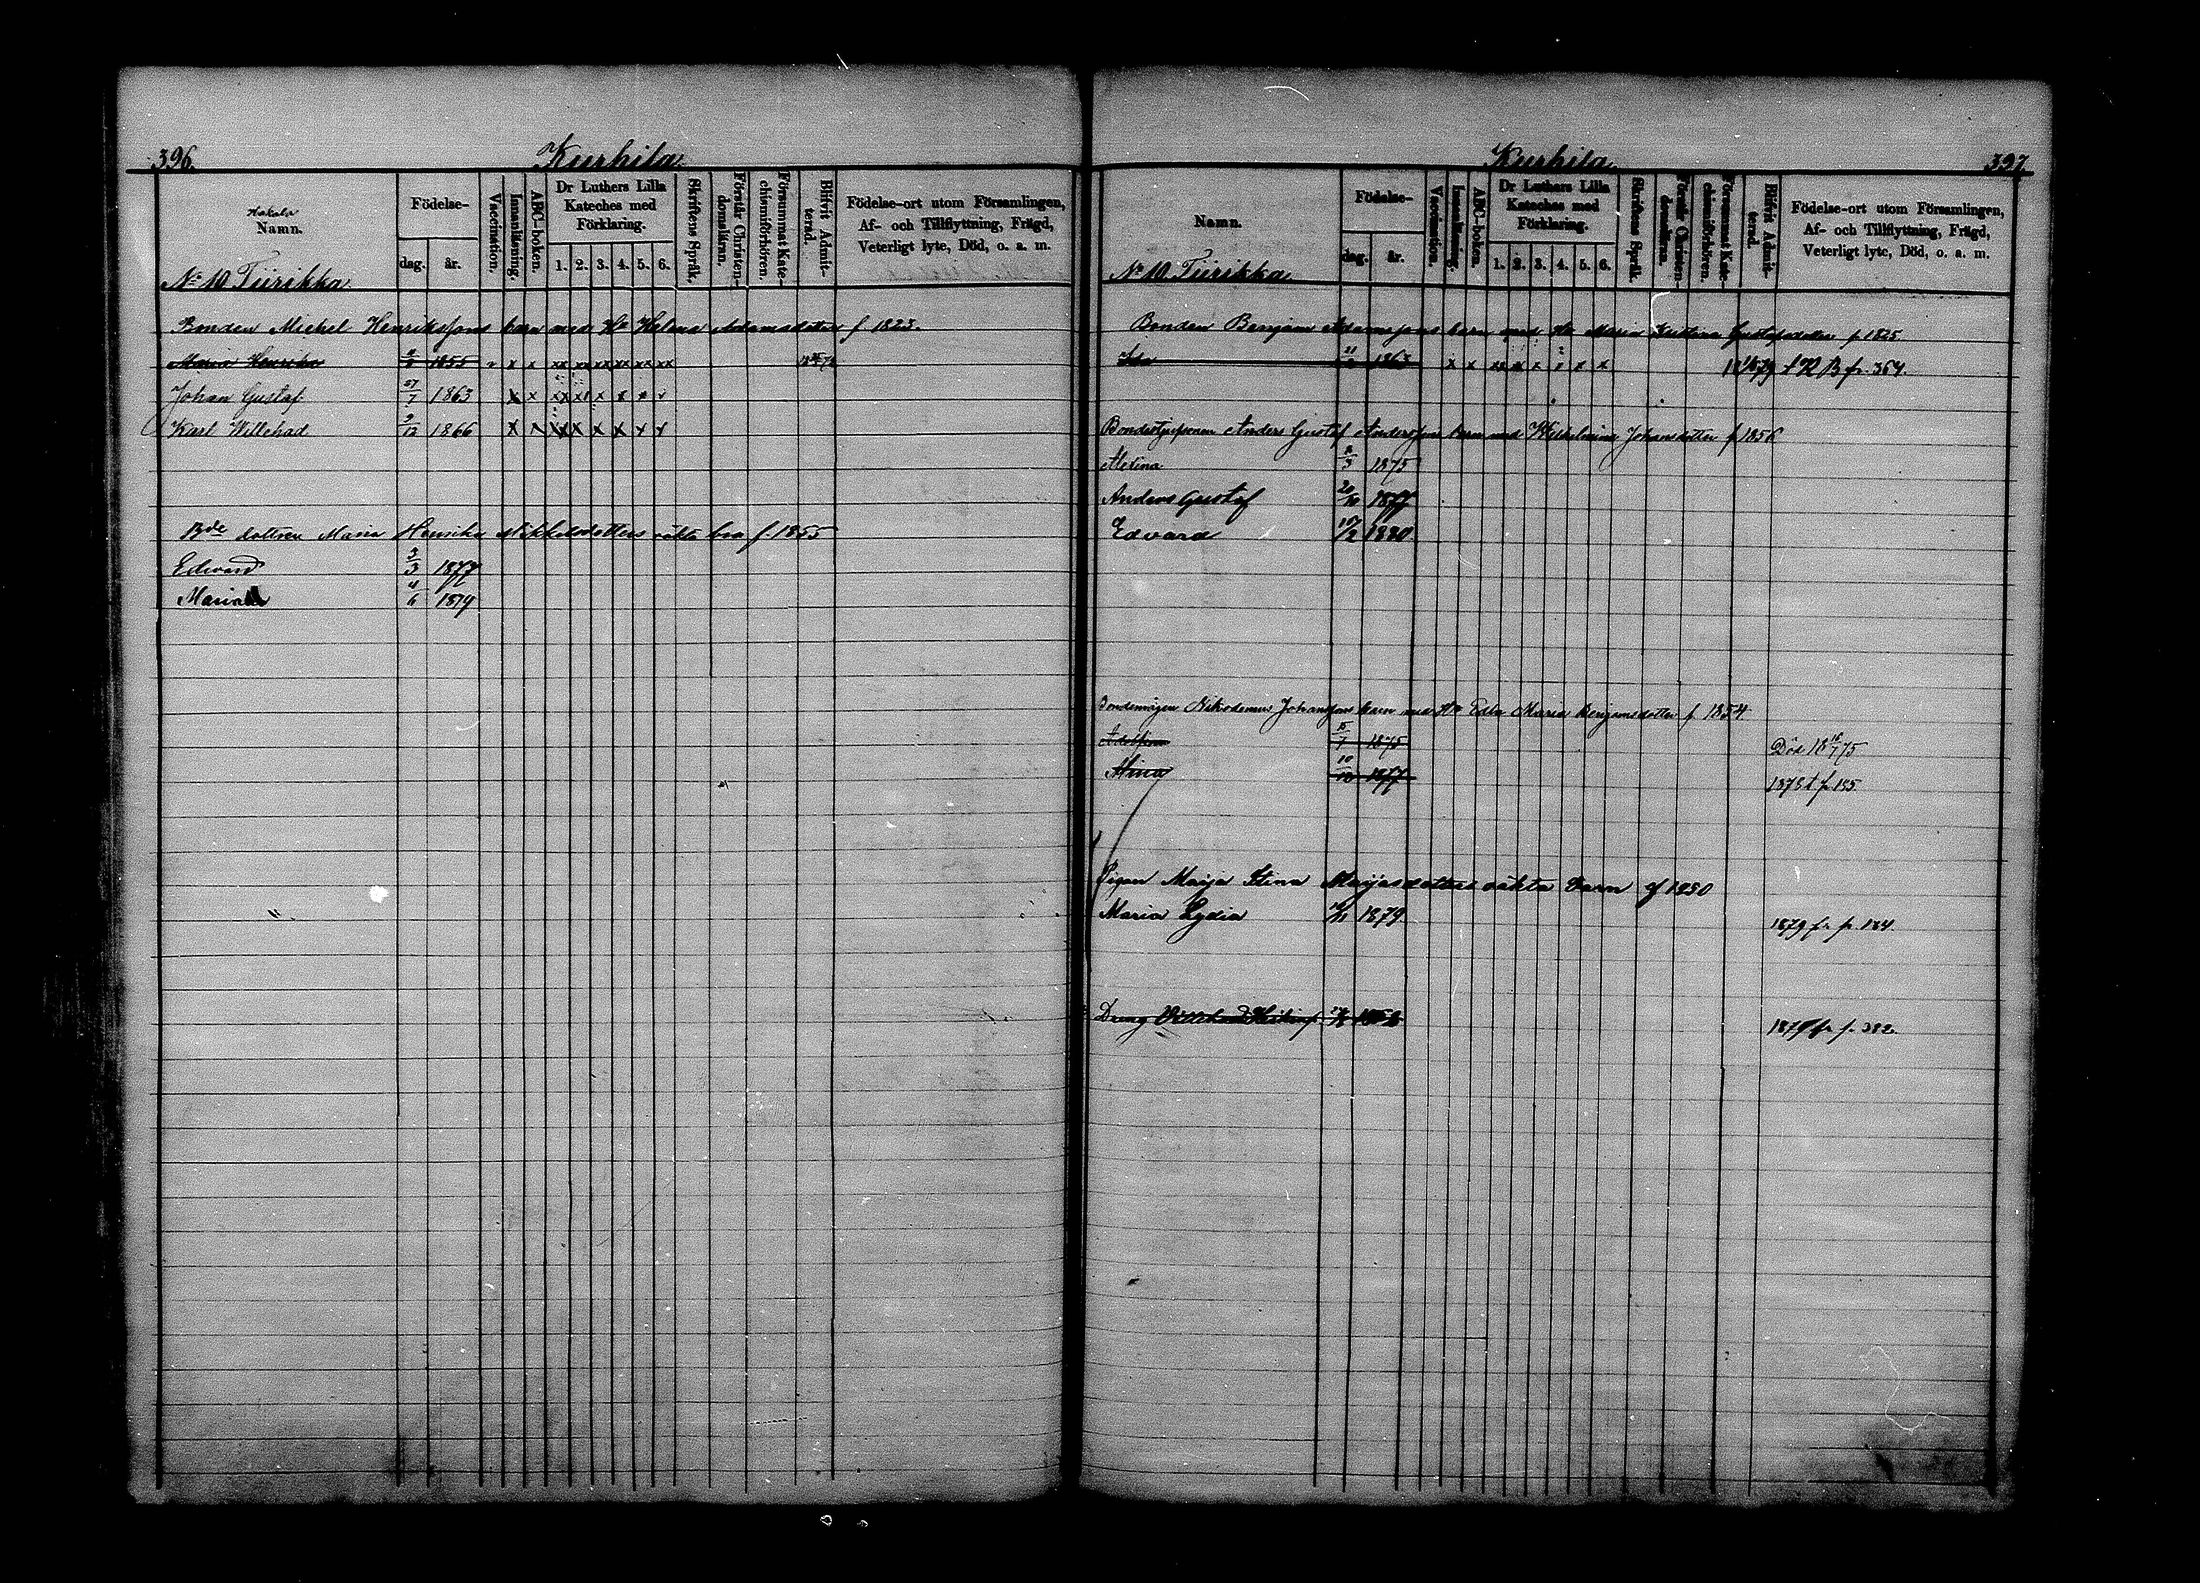 396.
Kurhila.
Hakala
Namn.
Födelse-
dag.
år.
Vaccination.
Innanläsning.
ABC-boken.
Dr Luthers Lilla
Kateches med
Förklaring.
1. 2. 3. 4. 5. 6.
Skriftens Språk.
Förstår Christen-
domslärans.
Försummat Kate-
chismiförhören.
Blifvit Admit-
terad.
Födelse-ort utom Församlingen,
Af- och Tillflyttning, Frägd,
Veterligt lyte, Död, o. a. m.
No 10 Tiirikka
Bonden Michel Henrikssons barn med Ho Helena Adamsdotter f 1823.
Maria Henrika 1855 x x xx xx xx xx xx xx
Johan Gustaf 27/7 1863 x x xx xx x x x
Karl Willehad 9/12 1866 x x x x x x x x
Bde dottren Maria Henrika Mikkelsdotters oäkta brn f. 1855
Edward 3/3 1877
Maria 4/6 1879
397.
Kurhila.
Namn.
Födelse-
dag.
år.
Vaccination.
Innanläsning.
ABC-boken.
Dr Luthers Lilla
Kateches med
Förklaring.
1. 2. 3. 4. 5. 6.
Skriftens Språk.
Förstår Christen-
domsläran.
Försummat Kate-
chismiförhören.
Blifvit Admit-
terad.
Födelse-ort utom Församlingen,
Af- och Tillflyttning, Frägd,
Veterligt lyte, Död, o. a. m.
No 10 Tiirikka
Bonden Benjam Adamssons barn med Ho Maria Kristina Gustafsdotter f 1825.
Ida 1863 x x xx xx x x x x t R B fr. 364.
Anders Gustaf Anderssons barn med Wilhelmina Johansdotter f 1856
Metina 8/3 1875
Anders Gustaf 20/10 1877
Edvard 17/2 1880
Bondemågen Nikodemus Johanssons barn med Ho Edla Maria Benjamsdotter f. 1854
15/7 1875 Död 18 18/7 75
Mina 10/10 1877 1878 t p. 155
Pigan Maija Stina Maijasdotters oäkta barn f 1850
Maria Lydia 1879. 1879 fr p. 184.
Dreng fr p. 382.